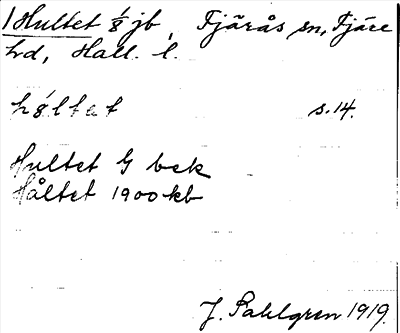 1 Hultet 1/8 jb, Fjärås sn, Fjäre
hd, Hall. l.
hø̀ltət s. 14.
Hultet G bek
Håltet 1900 kb
J. Sahlgren 1919.